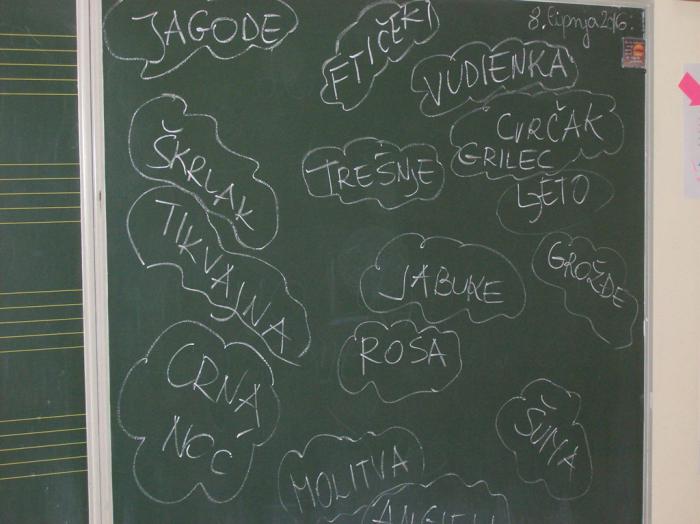 JAGODE
FTIČEKI
8. lipnja 2016.
VUDIENKA
CVRČAK
GRILEC
ŠKRLAK
TREŠNJE
LJETO
TIKVAJNA
JABUKE
GROŽDE
ROSA
CRNA
NOĆ
ŠUMA
MOLITVA